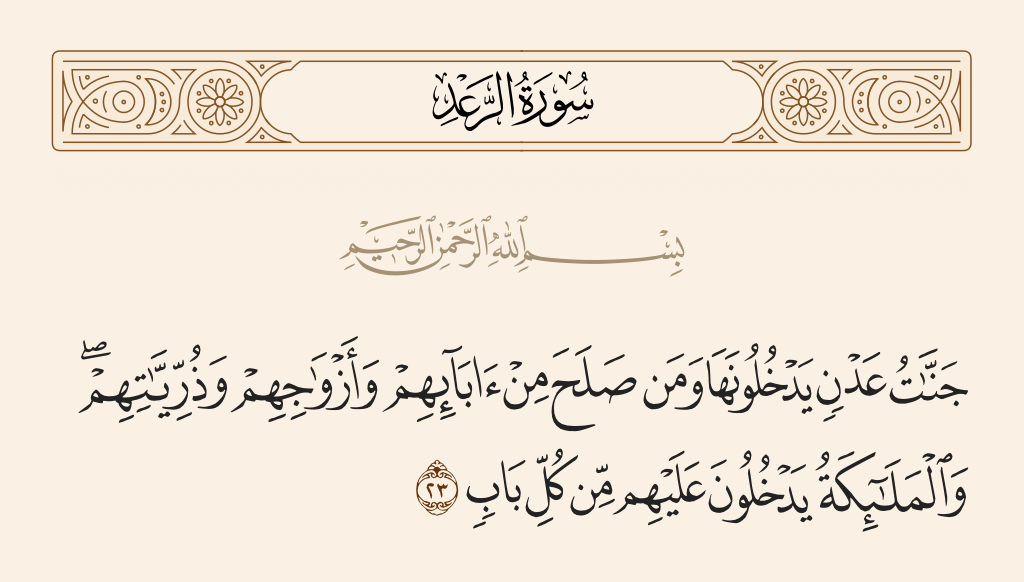 سُورَةُ الرَّعْدِ
بِسْمِ ٱللَّهِ ٱلرَّحْمَٰنِ ٱلرَّحِيمِ
جَنَّٰتُ عَدْنٍ يَدْخُلُونَهَا وَمَن صَلَحَ مِنْ ءَابَآئِهِمْ وَأَزْوَٰجِهِمْ وَذُرِّيَّٰتِهِمْ ۖ
وَٱلْمَلَٰٓئِكَةُ يَدْخُلُونَ عَلَيْهِم مِّن كُلِّ بَابٍ ٢٣